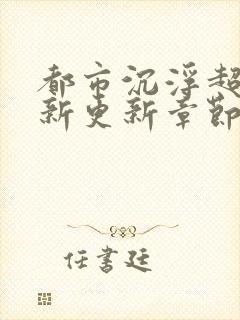 都市沉浮超
新更新章節
任書廷